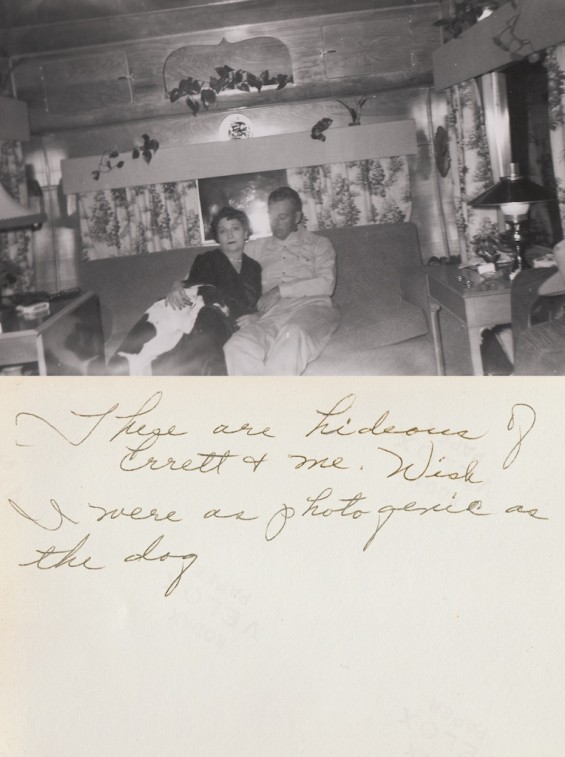 These are hideous of
Errett & me. Wish
I were as photogenic as
the dog
VELOX
VELOX